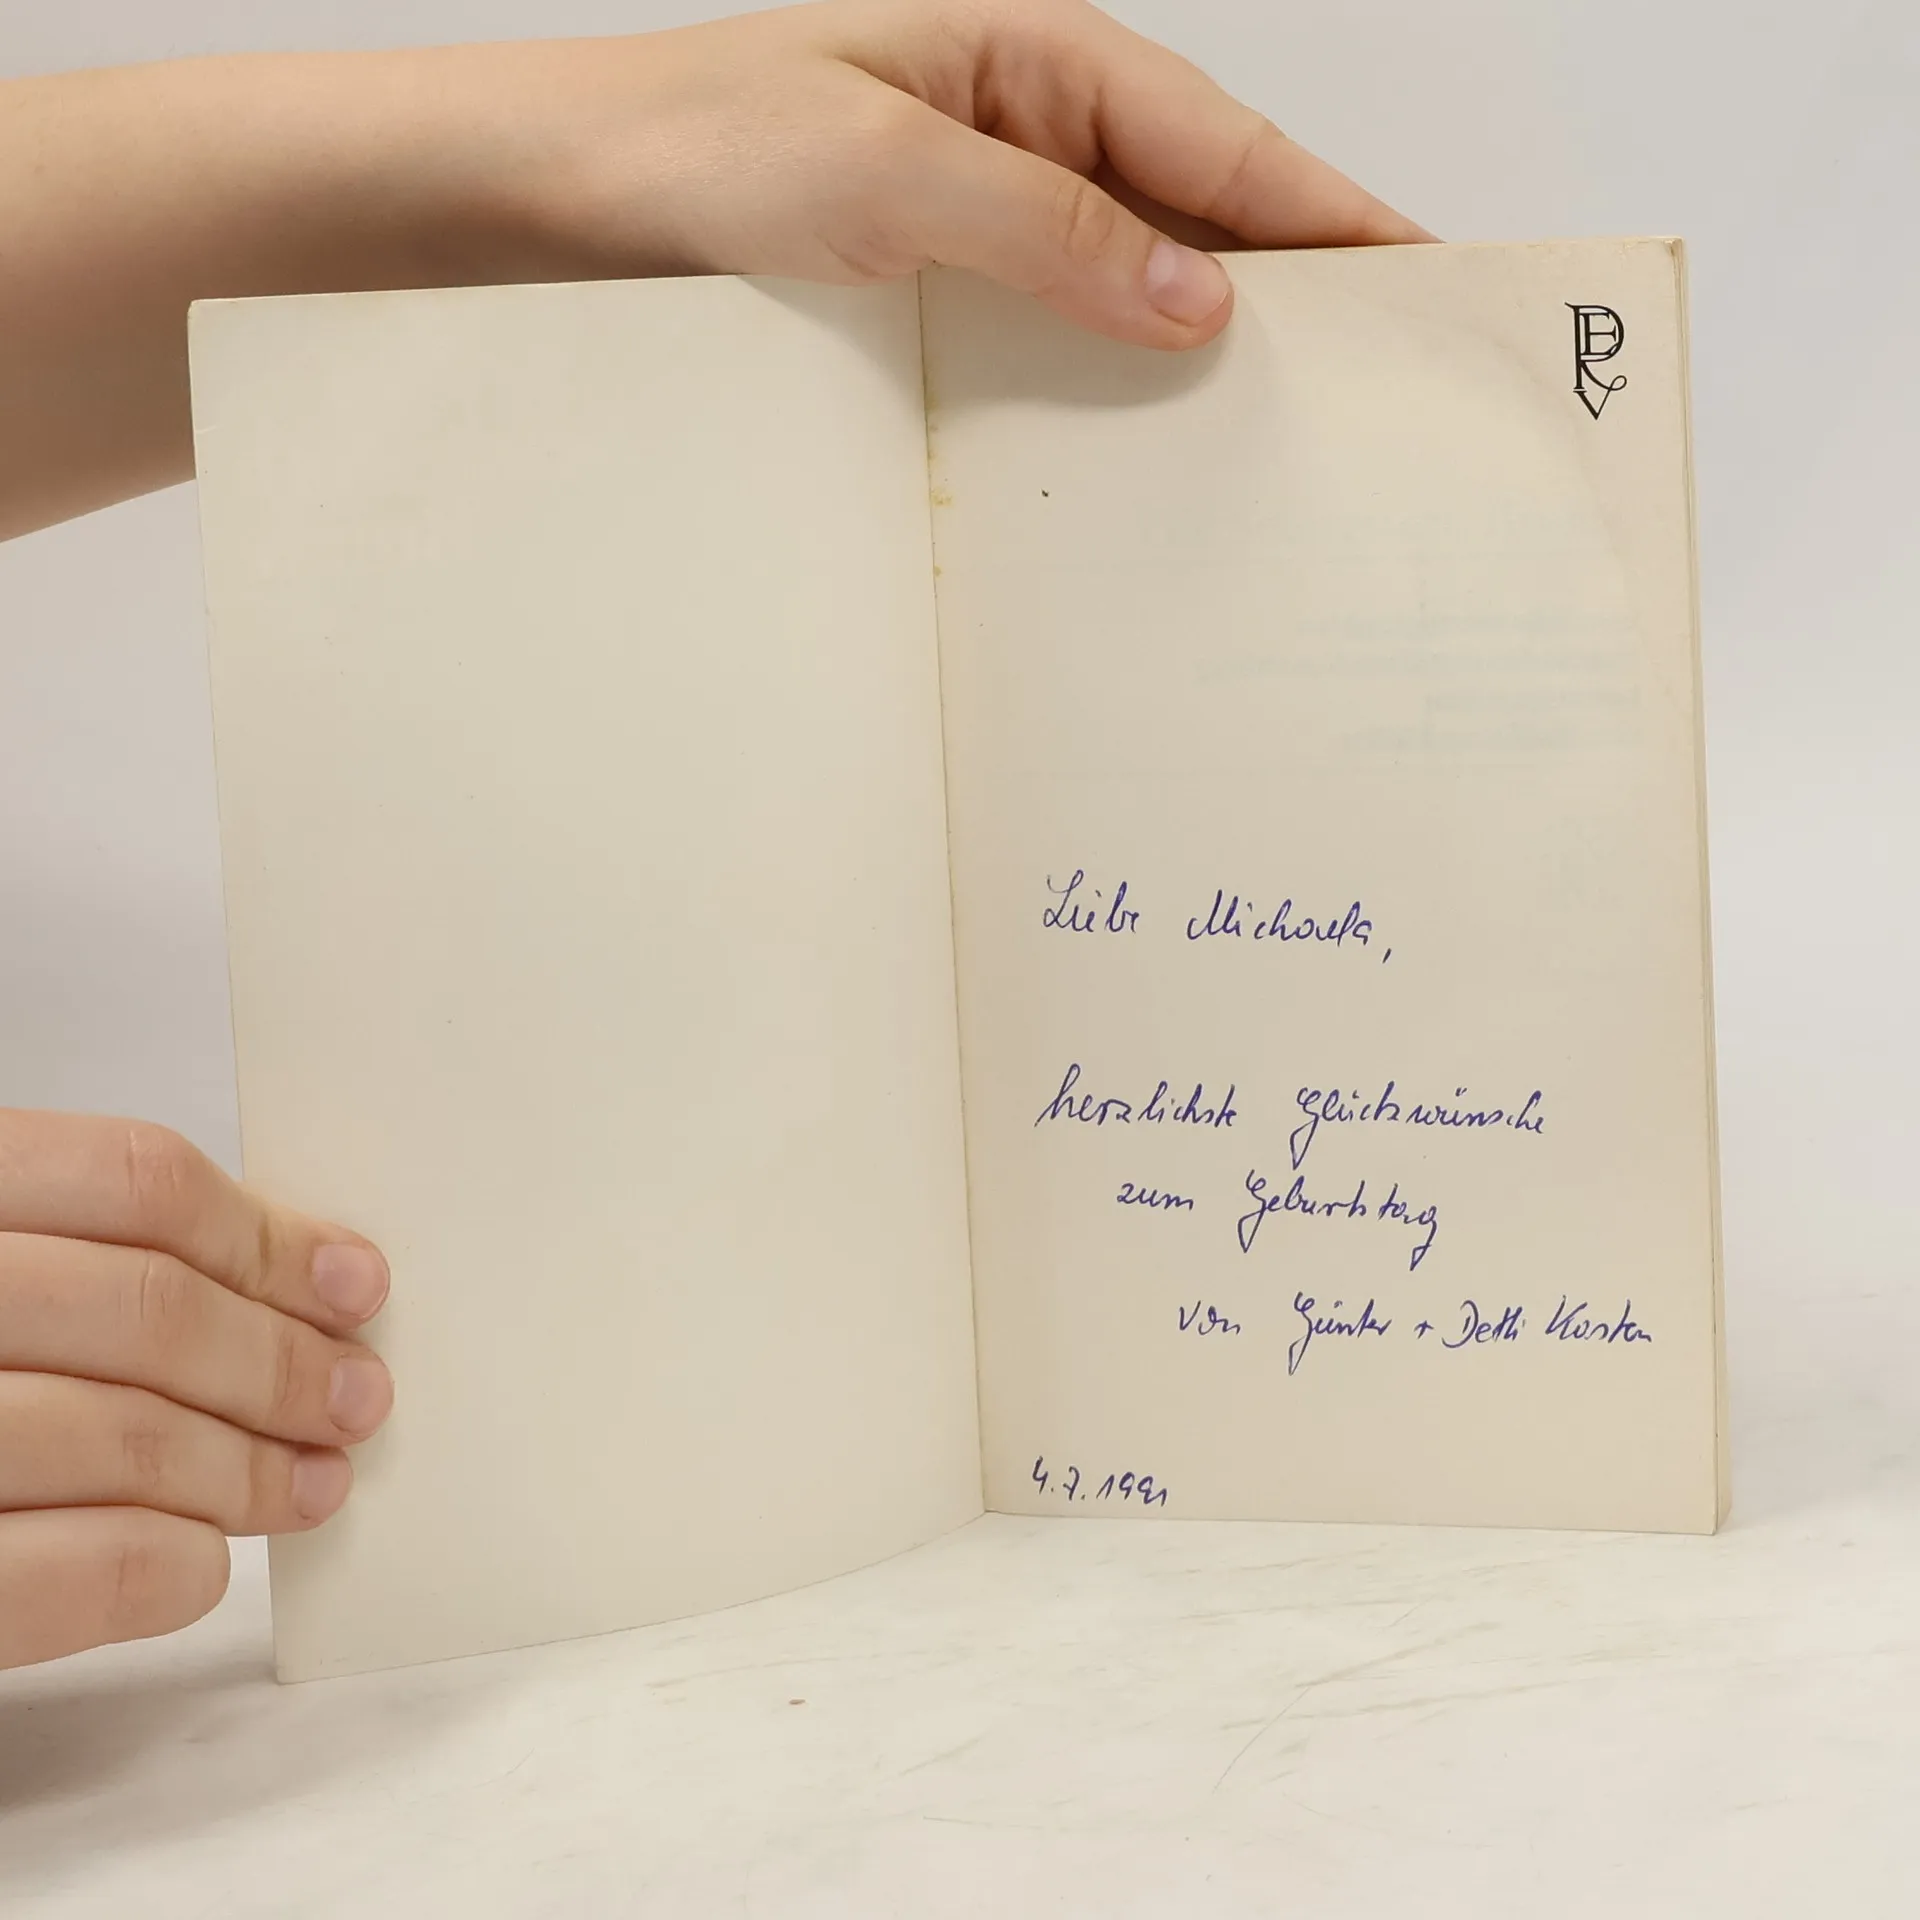 Liebe Michaela,
herzlichste Glückwünsche
zum Geburtstag
von Günter + Detli Kosten
4.7.1991